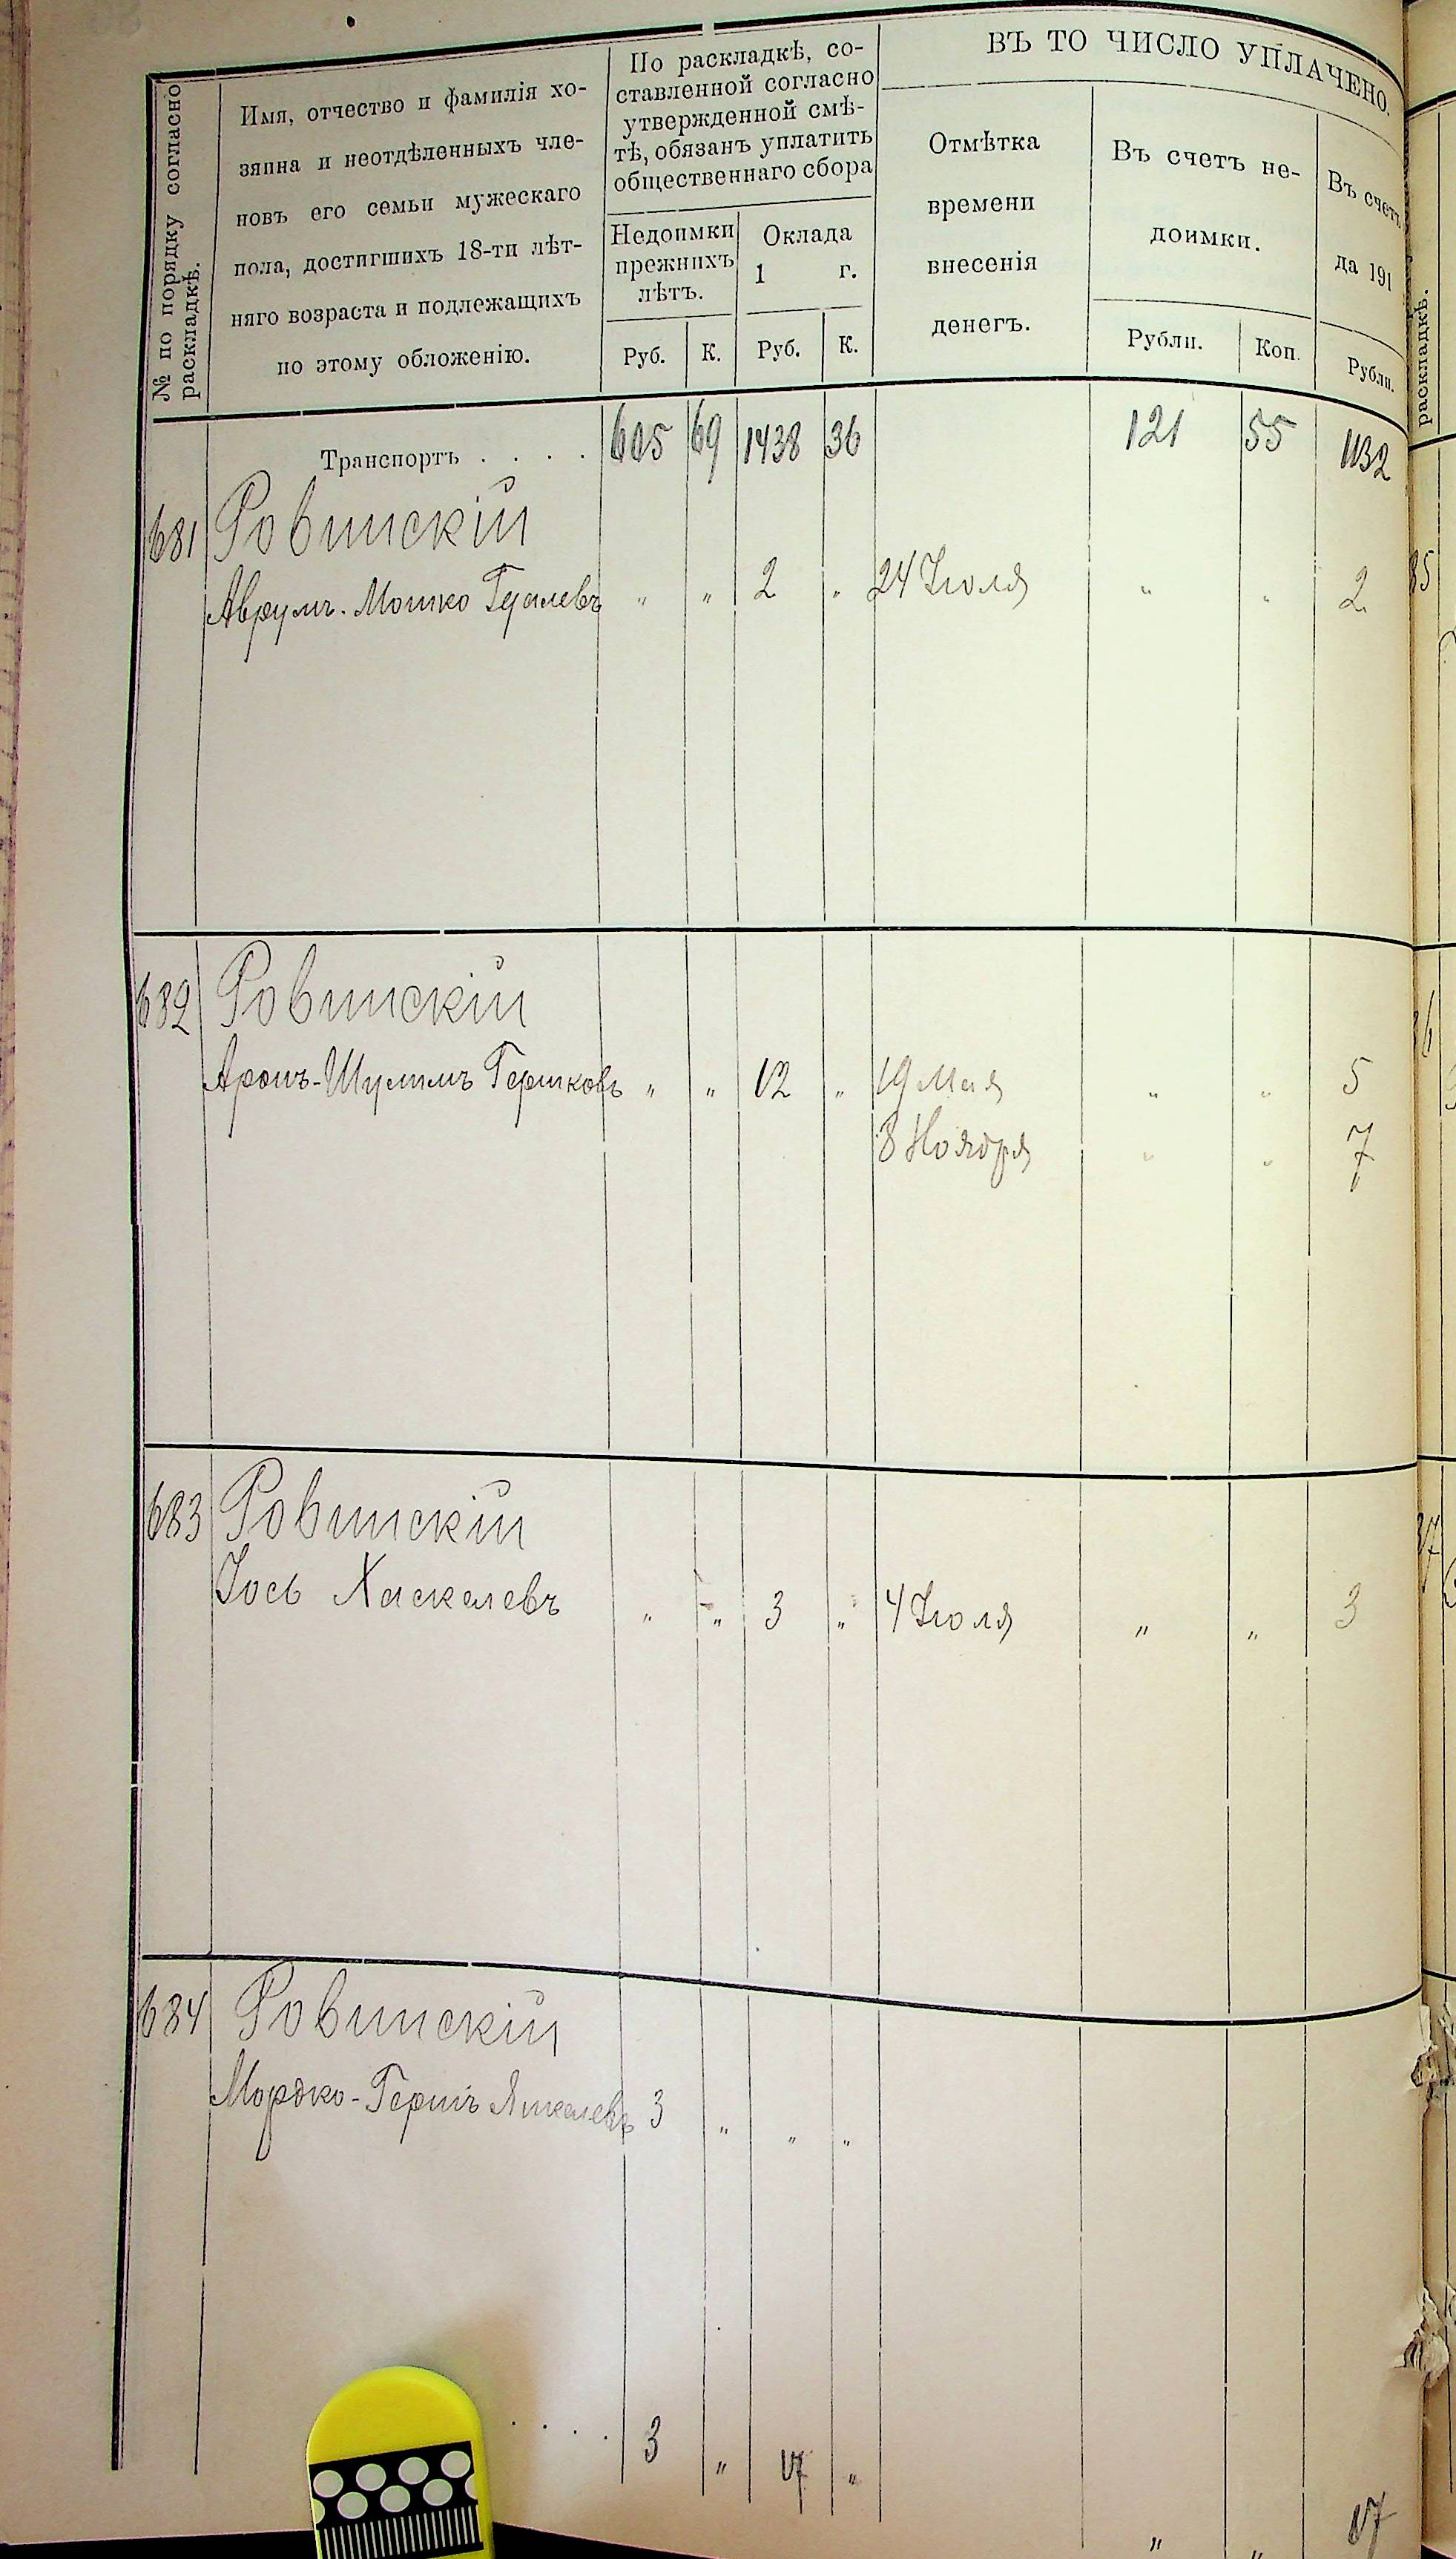 № по порядку согласно
раскладкѣ.
Имя, отчество и фамилія хо-
зяина и неотдѣленныхъ чле-
новъ его семьи мужескаго
пола, достигшихъ 18-ти лѣт-
няго возраста и подлежащихъ
по этому обложенію.
По раскладкѣ, со-
ставленной согласно
утвержденной смѣ-
тѣ, обязанъ уплатить
общественнаго сбора
Недоимки
прежнихъ
лѣтъ.
Оклада
1 г.
Руб. К. Руб. К.
ВЪ ТО ЧИСЛО УПЛАЧЕНО.
Отмѣтка
времени
внесенія
денегъ.
Въ счетъ не-
доимки.
Рубли. Коп.
Въ счетъ
да 191
Рубли.
раскладкѣ.
Транспортъ . . . . 605 69 1438 36 121 55 1132
681 Ровинскій
Аврумъ-Мошко Гдалевъ " " 2 " 24 Іюля " " 2
682 Ровинскій
Аронъ-Шулимъ Гершковъ " " 12 " 19 Мая " " 5
8 Ноября " " 7
683 Ровинскій
Іось Хаскелевъ " " 3 " 4 Іюля " " 3
684 Ровинскій
Мордко-Гершъ Янкелевъ 3 " " "
. . . . 3 " 17 " " " 17